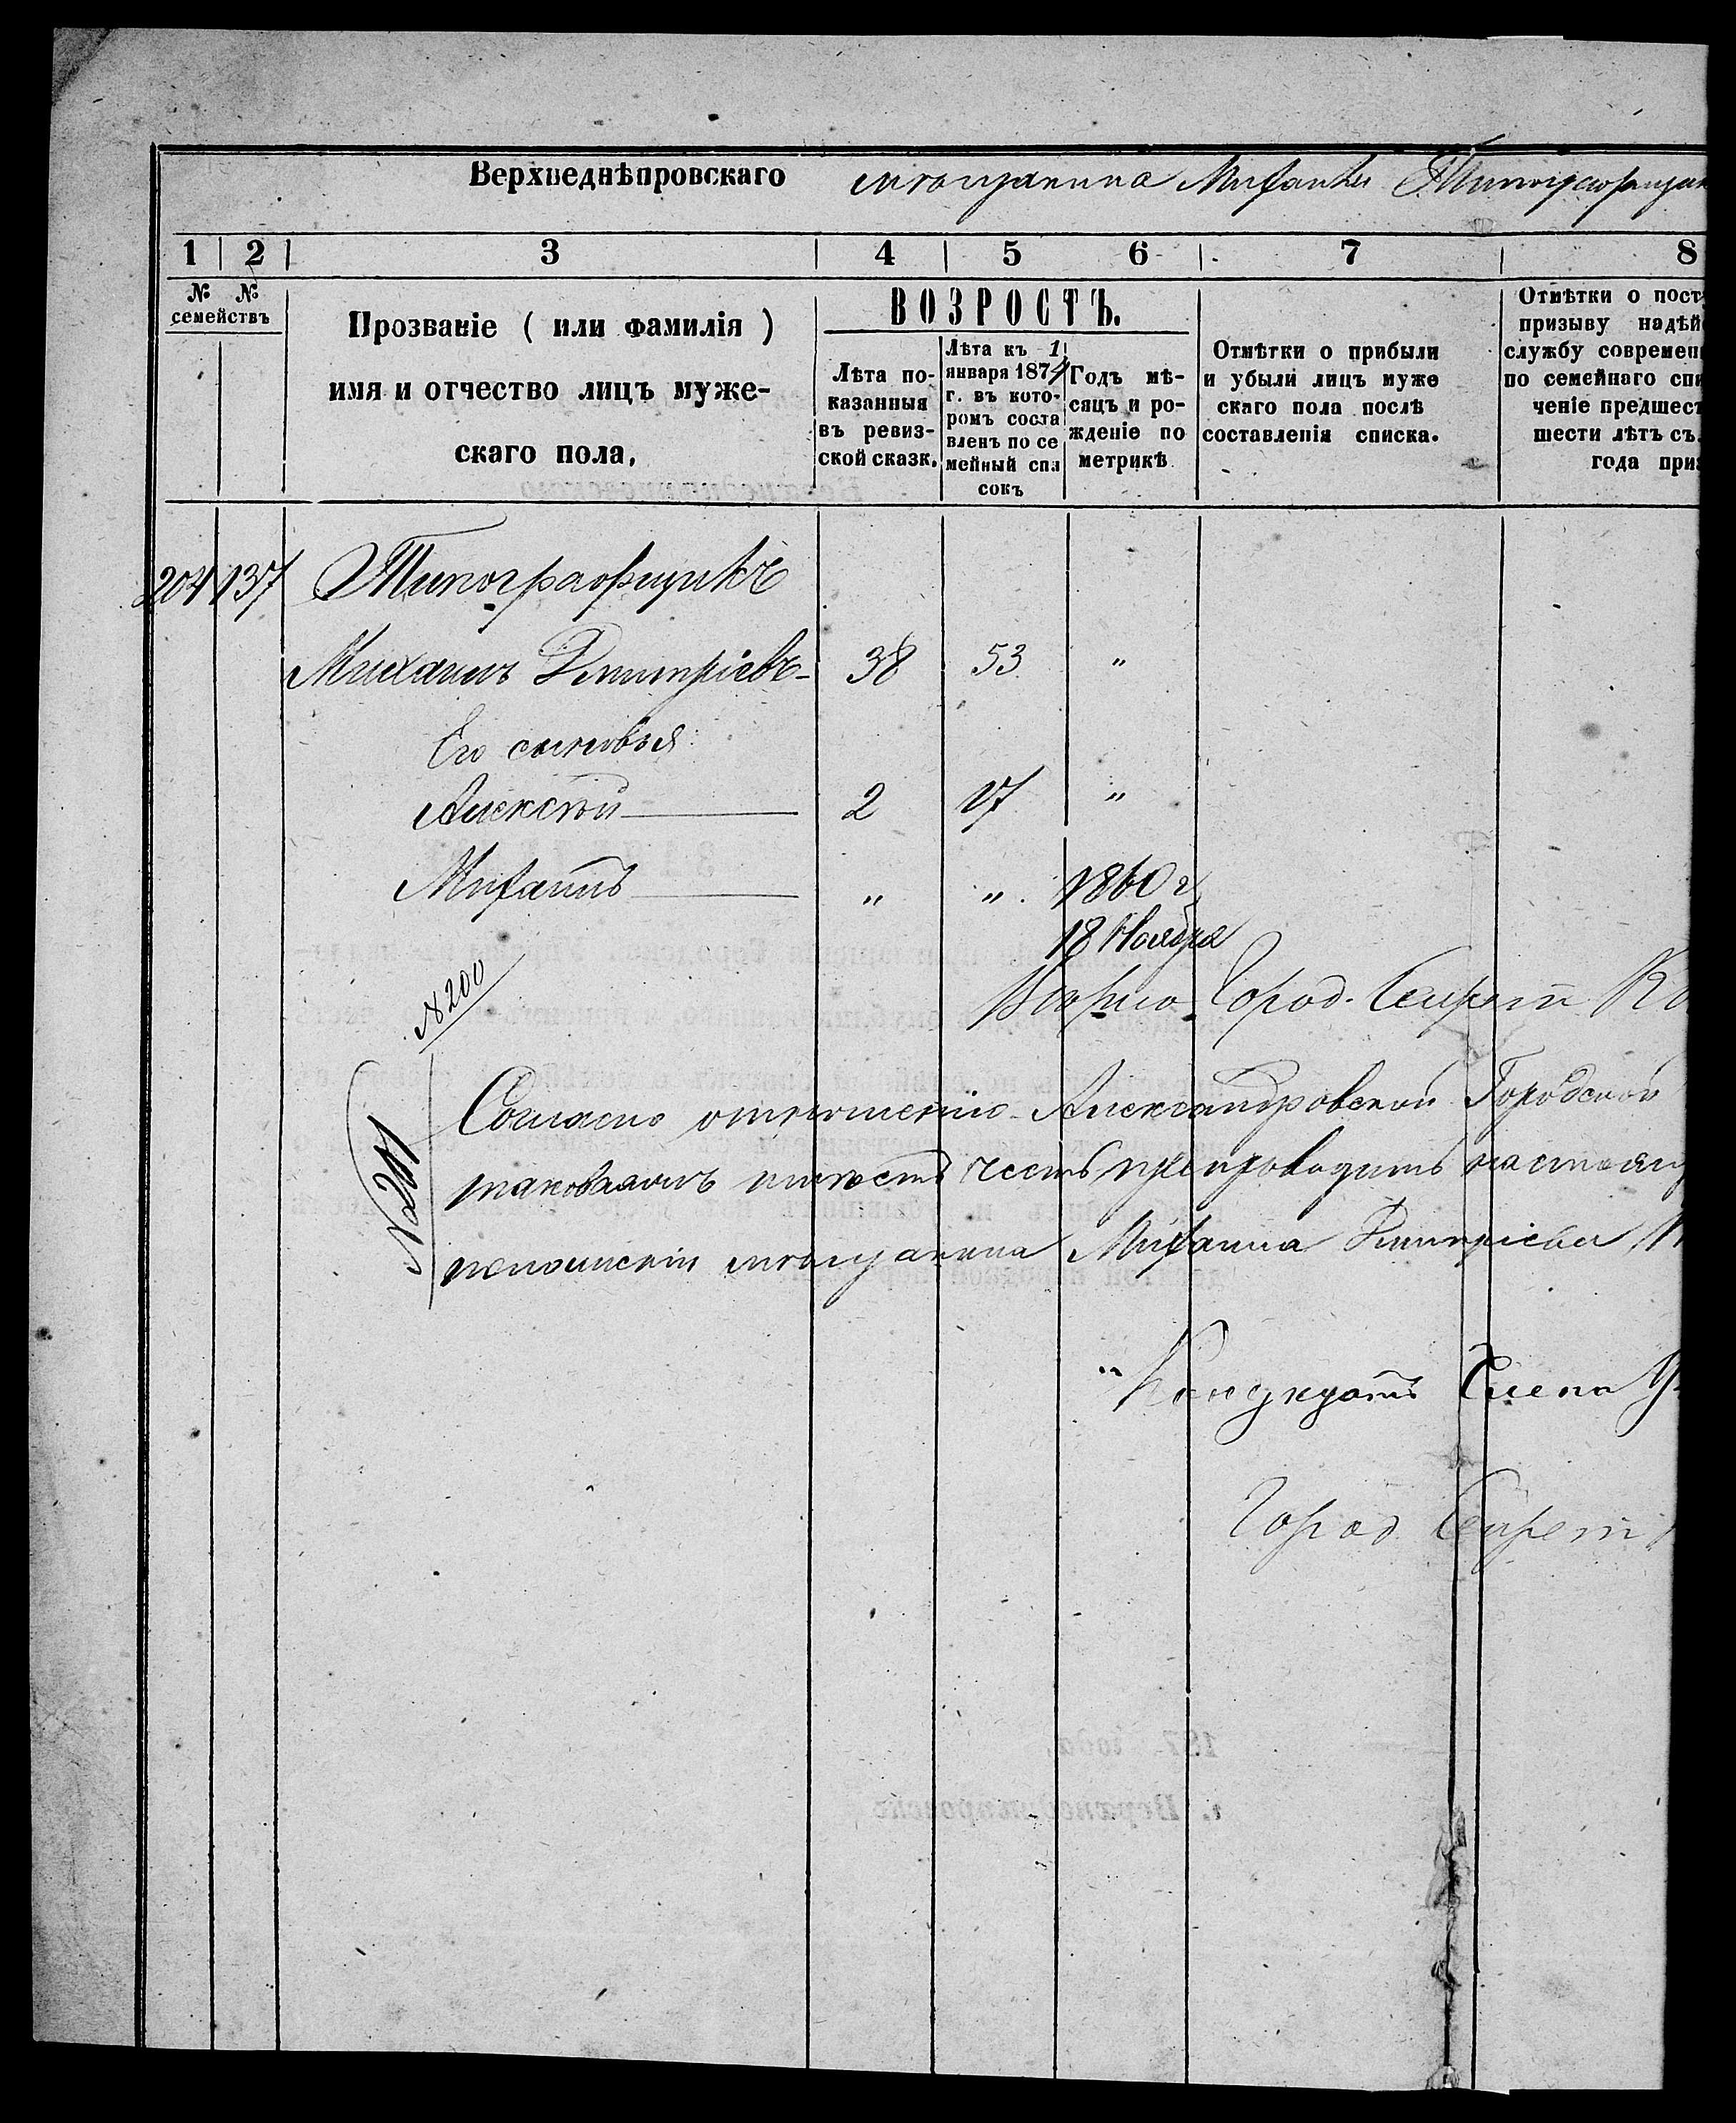 Верхнеднѣпровскаго мѣщанина Михаила Типографщик
1 2 3 4 5 6 7 8
№ №
семействъ
Прозваніе ( или фамилія )
имя и отчество лицъ муже-
скаго пола,
ВОЗРОСТЪ.
Лѣта по-
казанныя
въ ревиз-
ской сказк.
Лѣта къ 1
января 1874
г. въ кото-
ромъ соста
вленъ по се
мейный спи
сокъ
Годъ мѣ-
сяцъ и ро-
жденіе по
метрикѣ
Отмѣтки о прибыли
и убыли лицъ муже
скаго пола послѣ
составленія списка.
Отмѣтки о пост
призыву надѣй
службу современ
по семейнаго спи
ченіе предшест
шести лѣтъ съ
года приз
204 137 Типографщикъ
Михаилъ Дмитріевъ 38 53 "
Его сыновья:
Алексѣй 2 17 "
Михаилъ " " 1860 г.
18 Ноября
Вѣрно: Город. Секрет. К
№ 200
№ 201
Согласно отношенію Александровской Городской
таковаямъ имѣетъ честь препроводить настоящ
мѣщанина Михаила Дмитріева
Кандидатъ Члена У
Город. Секрет.
187 года.
г. Верхнеднѣпровскъ